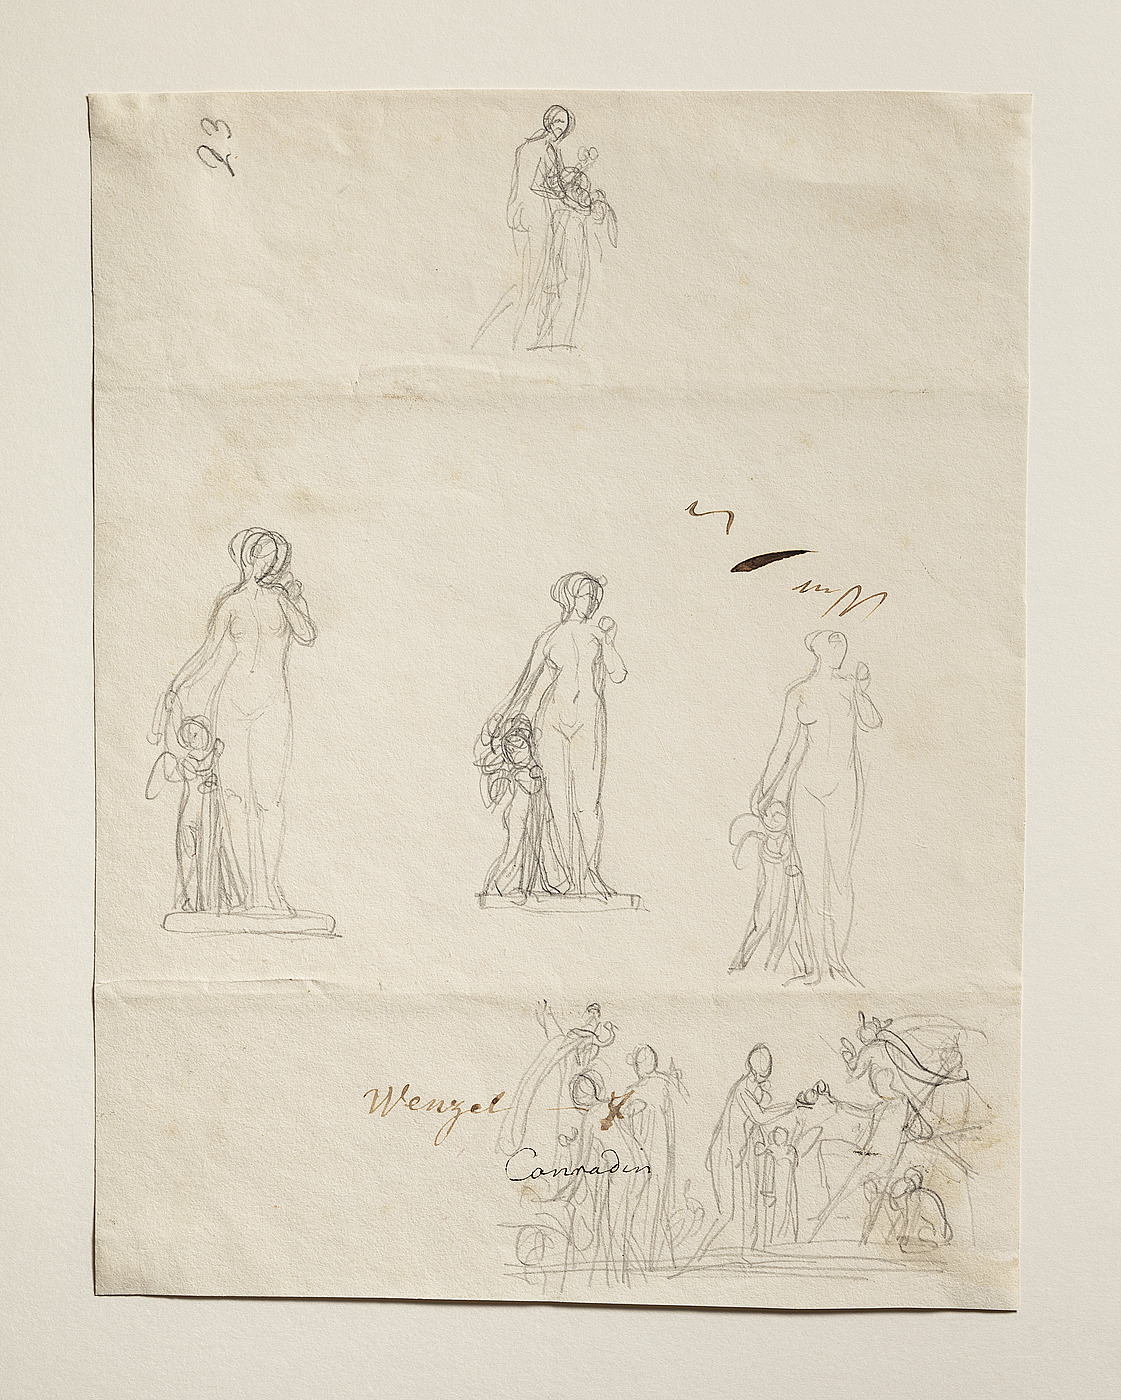 23
Wenzel
Conradin